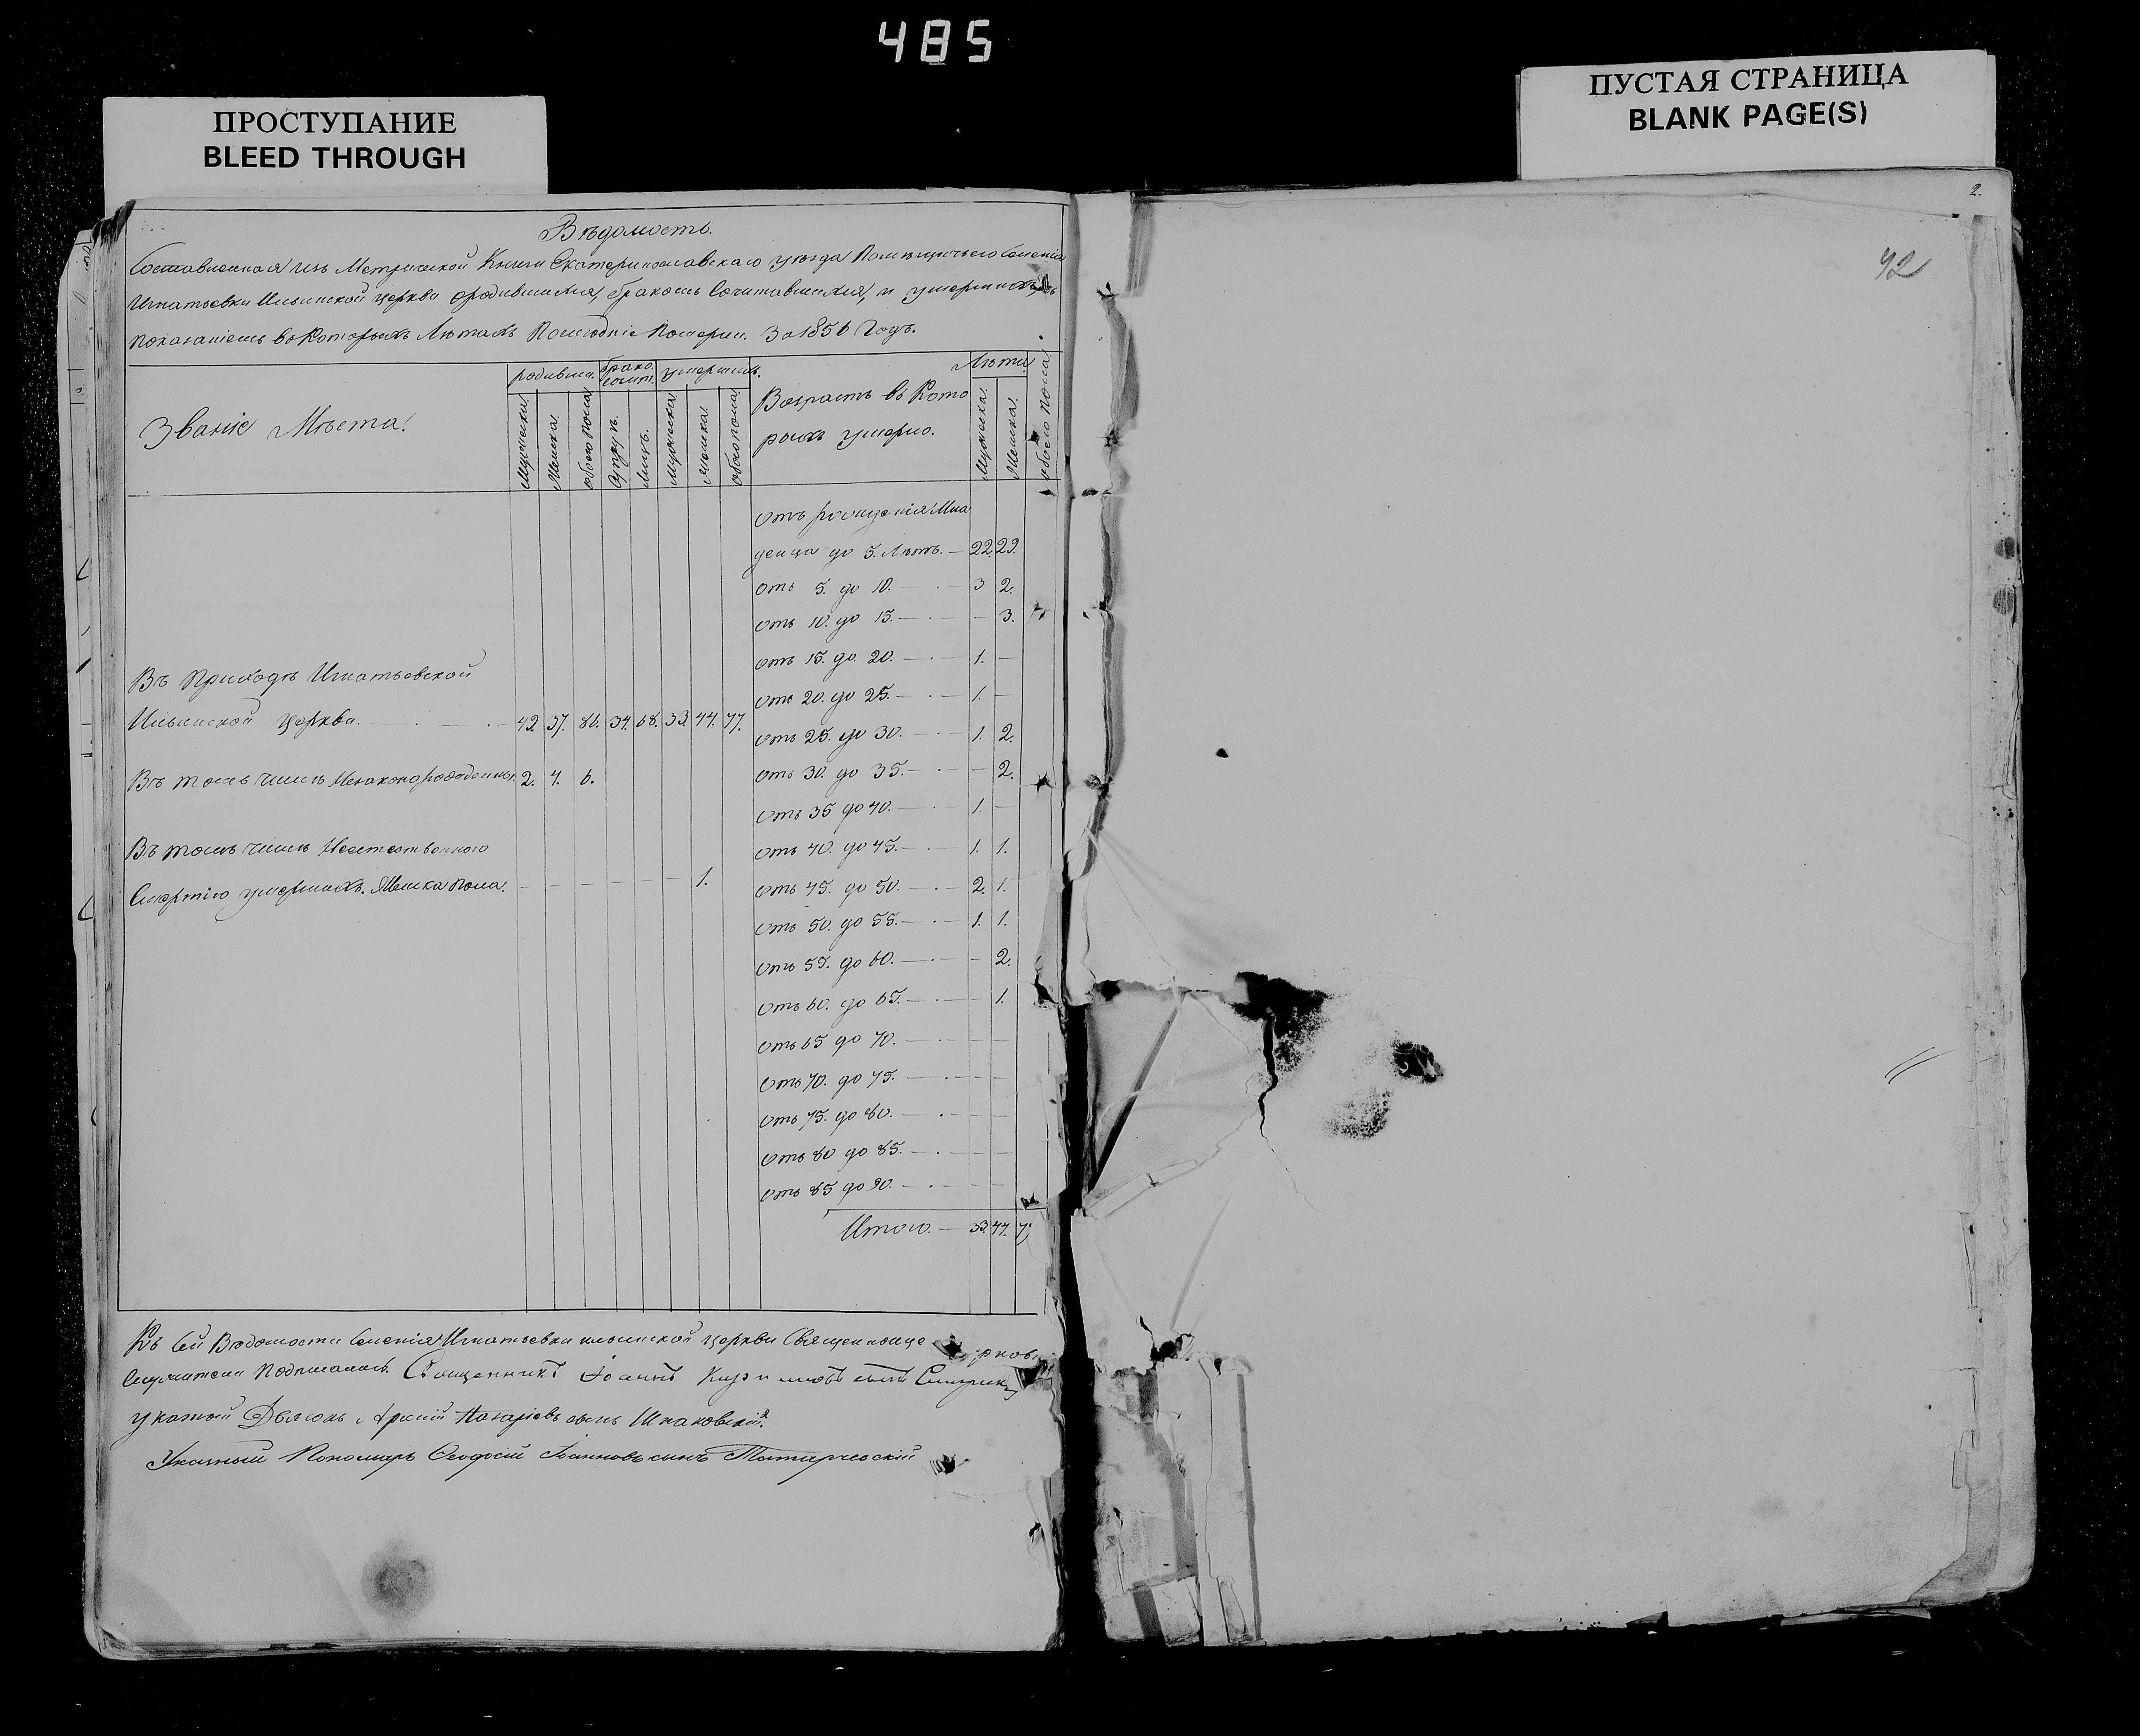 485
ПРОСТУПАНИЕ
BLEED THROUGH
ПУСТАЯ СТРАНИЦА
BLANK PAGE(S)
2.
42
Вѣдомость.
Составленная изъ Метрической Книги Екатеринославскаго уѣзда Помѣщичьего Селенія
Игнатьевки Ильинской церкви о родившихся, бракомъ Сочитавшихся, и умершихъ, съ
показаніемъ въ Которыхъ Лѣтахъ Послѣдніе Померли. За 1856 Годъ.
Званіе Мѣста.
родивш. брако сочит. умершихъ.
Мужеска. Женска. обоего пола. Супруж. Лицъ. Мужеска. Женска. обоего пола.
Возрастъ въ Кото
рыхъ умерло.
Лѣта
Мужеска. Женска. обоего пола
отъ рожденія Мла
денца до 5. Лѣтъ. — 22. 29.
отъ 5. до 10. — 3 2.
отъ 10. до 15. — — 3.
отъ 15. до 20. — 1. —
отъ 20. до 25. — 1. —
отъ 25. до 30. — 1. 2.
отъ 30. до 35. — — 2.
отъ 35 до 40. — 1. —
отъ 40. до 45. — 1. 1.
отъ 45. до 50. — 2. 1.
отъ 50. до 55. — 1. 1.
отъ 55. до 60. — — 2.
отъ 60. до 65. — — 1.
отъ 65 до 70. — — —
отъ 70. до 75. — — —
отъ 75. до 80. — — —
отъ 80 до 85. — — —
отъ 85 до 90. — — —
Итого. — 33. 44. 7
Въ Приходѣ Игнатьевской
Ильинской церкви. — 49. 37. 86. 34. 68. 33. 44. 77.
Въ томъ числѣ Незаконорожденны. 2. 4. 6.
Въ томъ числѣ Неестественного
Смертію умершихъ. Женска пола. — — — — — — 1.
Къ Сей Вѣдомости Селенія Игнатьевки ильинской церкви Священноце рковно
Служители Подписались. Священникъ Іоаннъ сынъ
указный Дьячокъ Назаріевъ сынъ Шпаковскій.
Указный Пономарь Ѳеодосій Іоанновъ сынъ